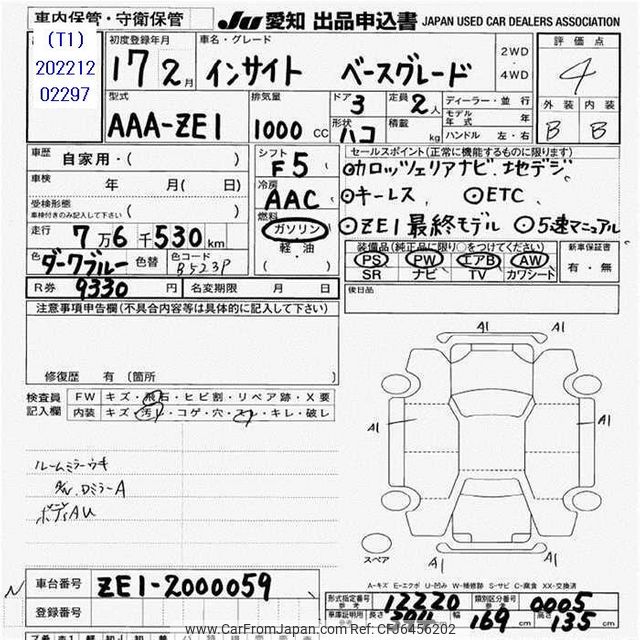 車内保管・守衛保管 JU 愛知 出品申込書 JAPAN USED CAR DEALERS ASSOCIATION
(T1)
202212
02297
初度登録年月 17 2月
車名・グレード インサイト ベースグレード
2WD・4WD
評価点 4
型式 AAA-ZE1
排気量 1000 CC
ドア 3
形状 ハコ
定員 2人
積載 kg
ディーラー・並行
モデル年式 年
ハンドル 左・右
外装 内装
B B
車歴 自家用・( )
車検 年 月( 日)
受検形態
車検付きのみ記入して下さい ( )
走行 7万6千530km
色 ダークブルー 色替 色コード B523P
シフト F5
冷房 AAC
燃料 ガソリン
軽・油
( )
セールスポイント(正常に機能するものに限ります)
カロッツェリアナビ.地デジ
キーレス、 ETC
ZE1最終モデル 5速マニュアル
装備品(純正品に限り○をつけてください) 新車保証書
PS PW エアB AW
SR ナビ TV カワシート
有・無
R券 9330円 名変期限 月 日
後日品
注意事項申告欄(不具合内容等は具体的に記入して下さい)
修復歴 有 〔箇所
検査員記入欄
FW キズ・飛石・ヒビ割・リペア跡・X要
内装 キズ・汚レ・コゲ・穴・スレ・キレ・破レ
A1 A1
A1 A1
ルームミラーウキ
DミラーA
ボディAU
スペア
A=キズ E=エクボ U=凹み W=補修跡 S=サビ C=腐食 XX=交換済
車台番号 ZE1-2000059
登録番号
形式指定番号 参考 12220 類別区分番号 参考 0005
長さ 幅 169 cm 高さ 135 cm
www.CarFromJapan.com Ref:CFJ6456202